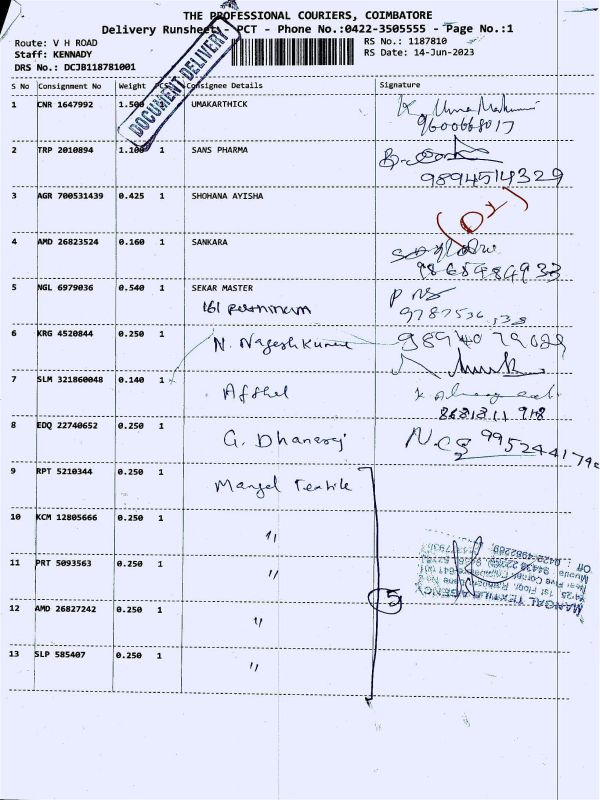 THE PROFESSIONAL COURIERS, COIMBATORE
Delivery Runsheet - PCT - Phone No.:0422-3505555 - Page No.:1
Route: V H ROAD
Staff: KENNADY
DRS No.: DCJB118781001
RS No.: 1187810
RS Date: 14-Jun-2023
DOCUMENT DELIVERY
S No Consignment No Weight PCS Consignee Details Signature
1 CNR 1647992 1.500 UMAKARTHICK
9600668017
2 TRP 2010894 1.100 1 SANS PHARMA
9894514329
3 AGR 700531439 0.425 1 SHOHANA AYISHA
4 AMD 26823524 0.160 1 SANKARA
5 NGL 6979036 0.540 1 SEKAR MASTER
6 KRG 4520844 0.250 1 N. Nagesh Kumar
7 SLM 321860048 0.140 1 Afshel
8 EDQ 22740652 0.250 1 G. Dhanaraj
9 RPT 5210344 0.250 1 Mangal Textile
10 KCM 12805666 0.250 1 "
11 PRT 5093563 0.250 1 "
12 AMD 26827242 0.250 1 "
13 SLP 585407 0.250 1 "
5
MANGAL TEXTILE AGENCY